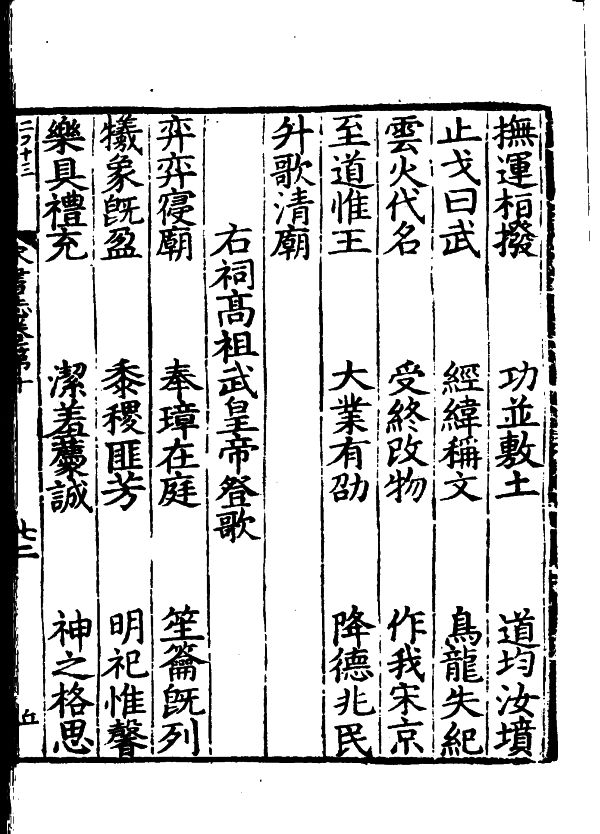 撫運栢撥　功並敷土　道均汝墳
止戈曰武　經緯稱文　鳥龍失紀
雲火代名　受終改物　作我宋京
至道惟王　大業有劭　降德兆民
升歌清廟
右祠髙祖武皇帝登歌
弈弈寑廟　奉璋在庭　笙籥旣列
犧象旣盈　黍稷匪芳　明祀惟馨
樂具禮充　潔羞薦誠　神之格思
二百十三